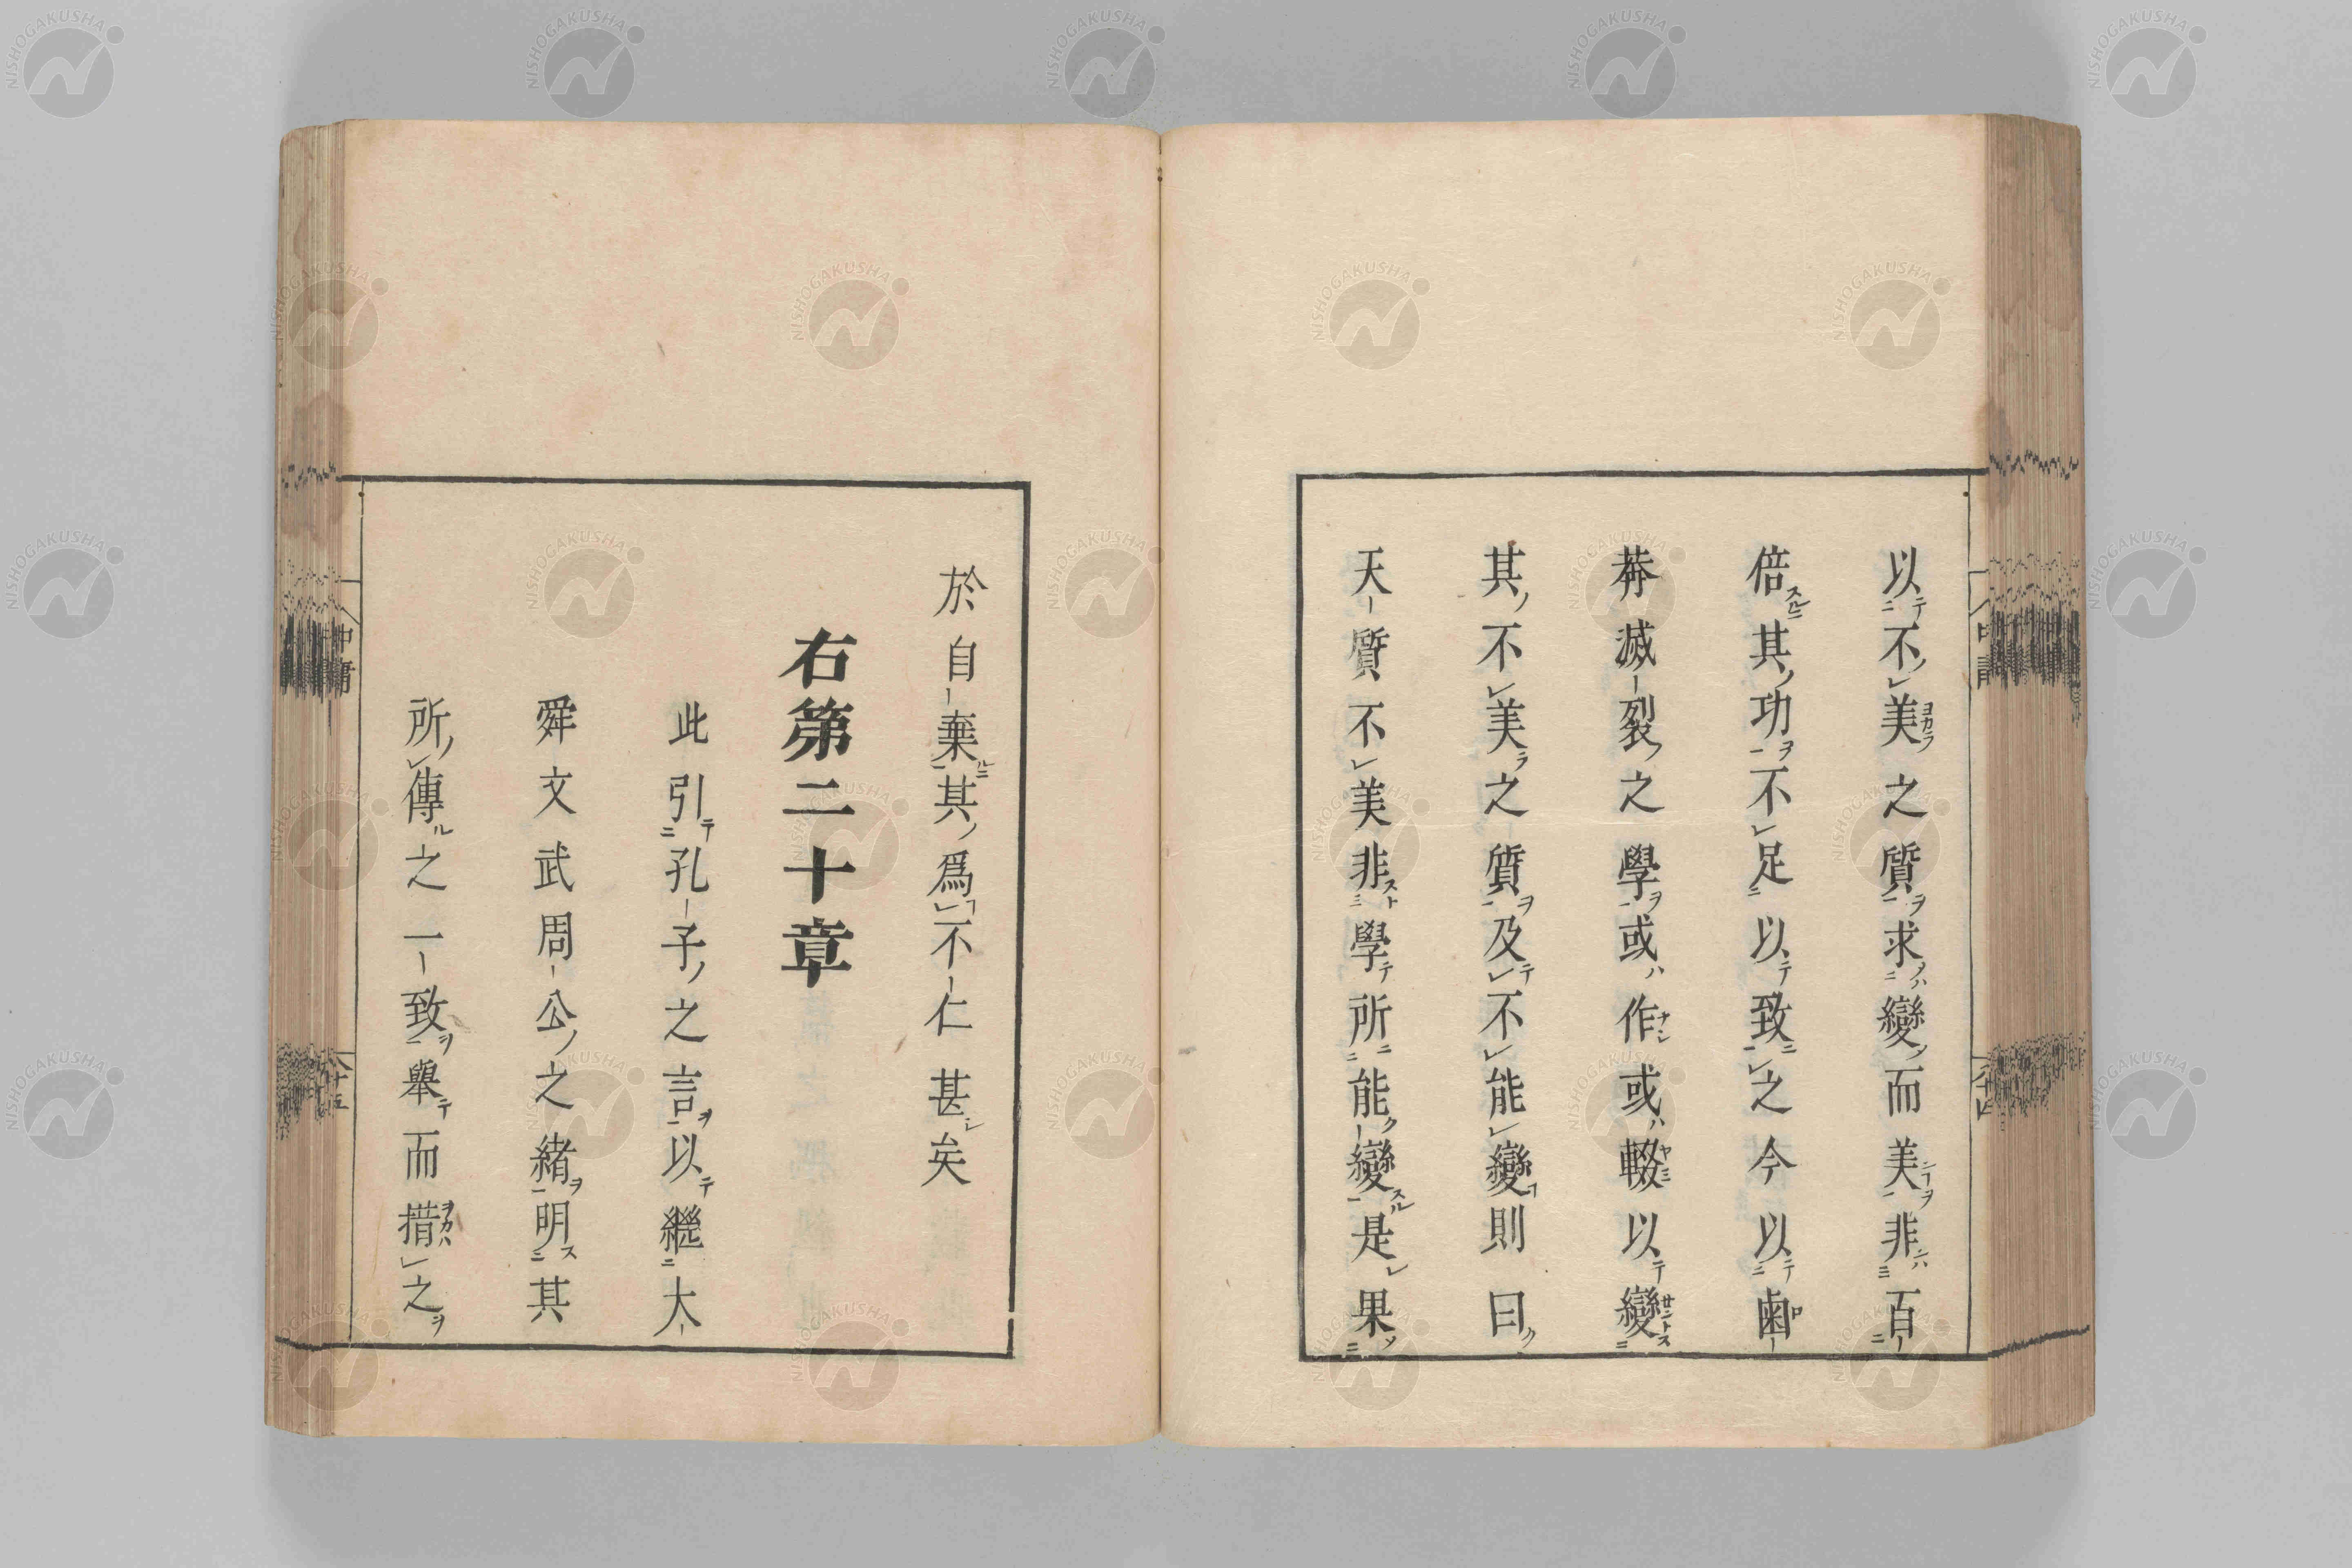 以不美之質求變而美非百
倍其功不足以致之今以鹵
莽滅裂之學或作或輟以變
其不美之質及不能變則曰
天質不美非學所能變是果
於自棄其爲不仁甚矣
右第二十章
此引孔子之言以繼大
舜文武周公之緒明其
所傳之一致舉而措之
中庸
六十五
NISHOGAKUSHA